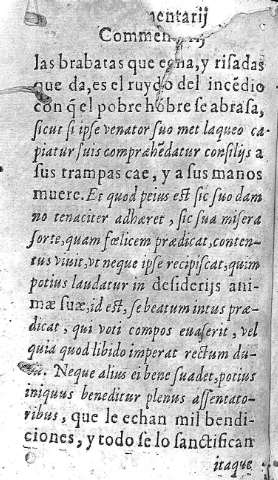 mentarij
Commen ij
las brabatas que echa, y risadas
que da, es el ruydo del incẽdio
con q̃ el pobre hõbre se abrasa,
sicut si ipse venator suo met laqueo ca-
piatur suis compræhẽdatur consilijs a
sus trampas cae, y a sus manos
muere. Et quod peius est sic suo dam
no tenaciter adhæret, sic sua misera
sorte, quam fœlicem prædicat, conten-
tus vivit, vt neque ipse recipiscat, quim
potius laudatur in desiderijs ani-
mæ suæ, id est, se beatum intus præ-
dicat, qui voti compos euaserit, vel
quia quod libido imperat rectum du-
Neque alius ei bene suadet, potius
iniquus beneditur plenus assentato-
ribus, que le echan mil bendi-
ciones, y todo se lo sanctifican
itaque